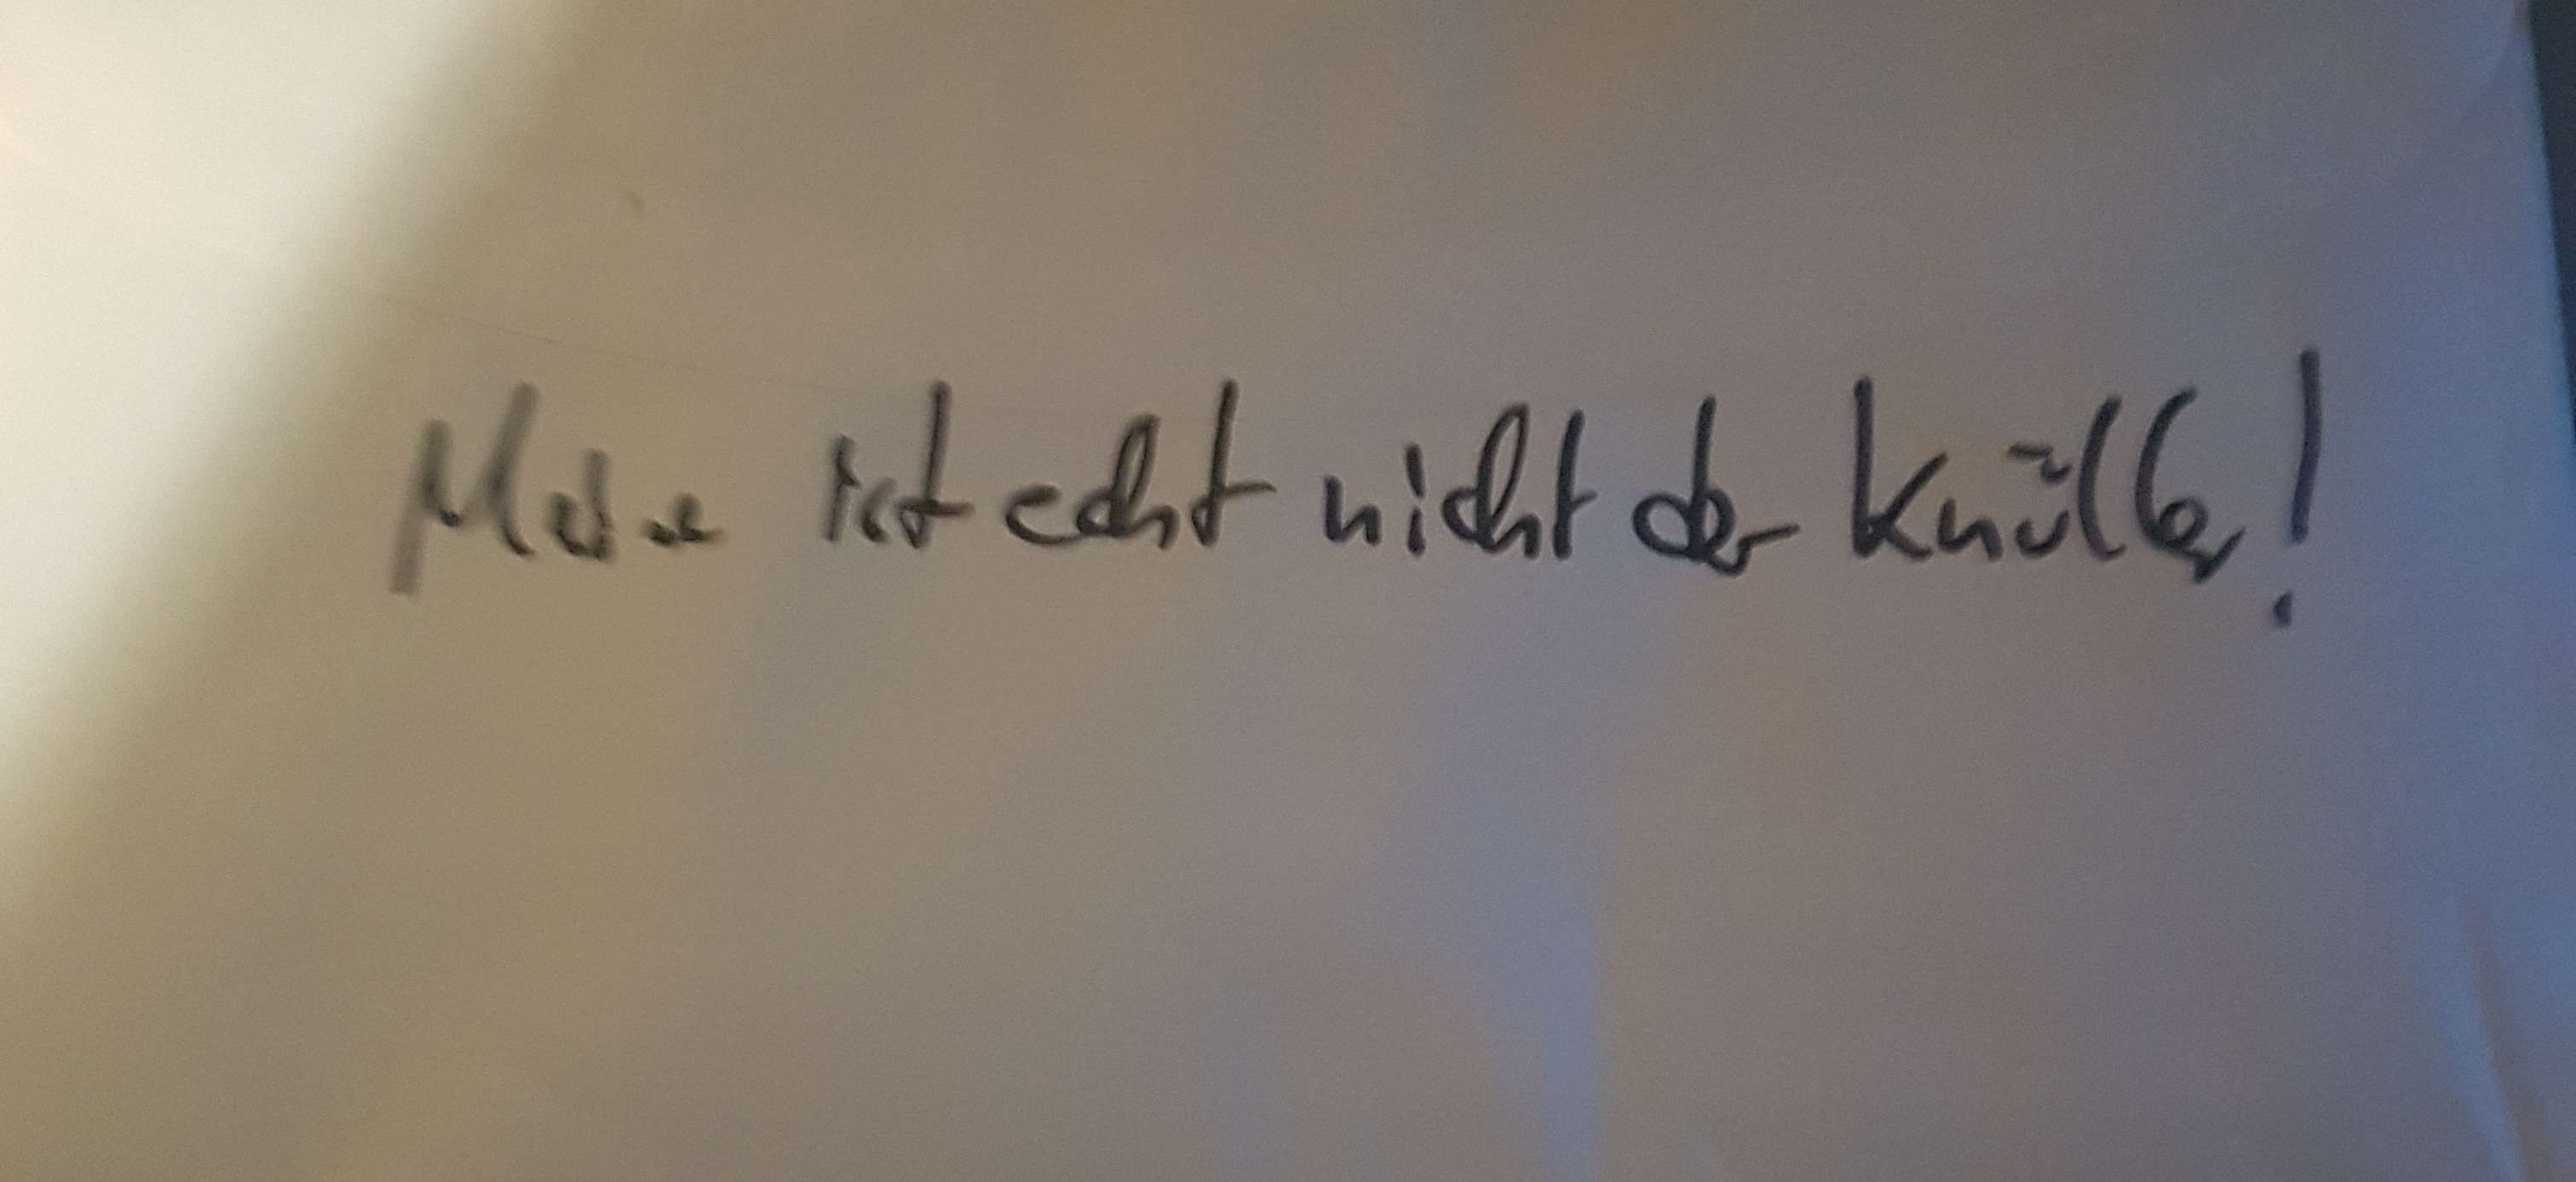 Meine ist echt nicht der Knüller!